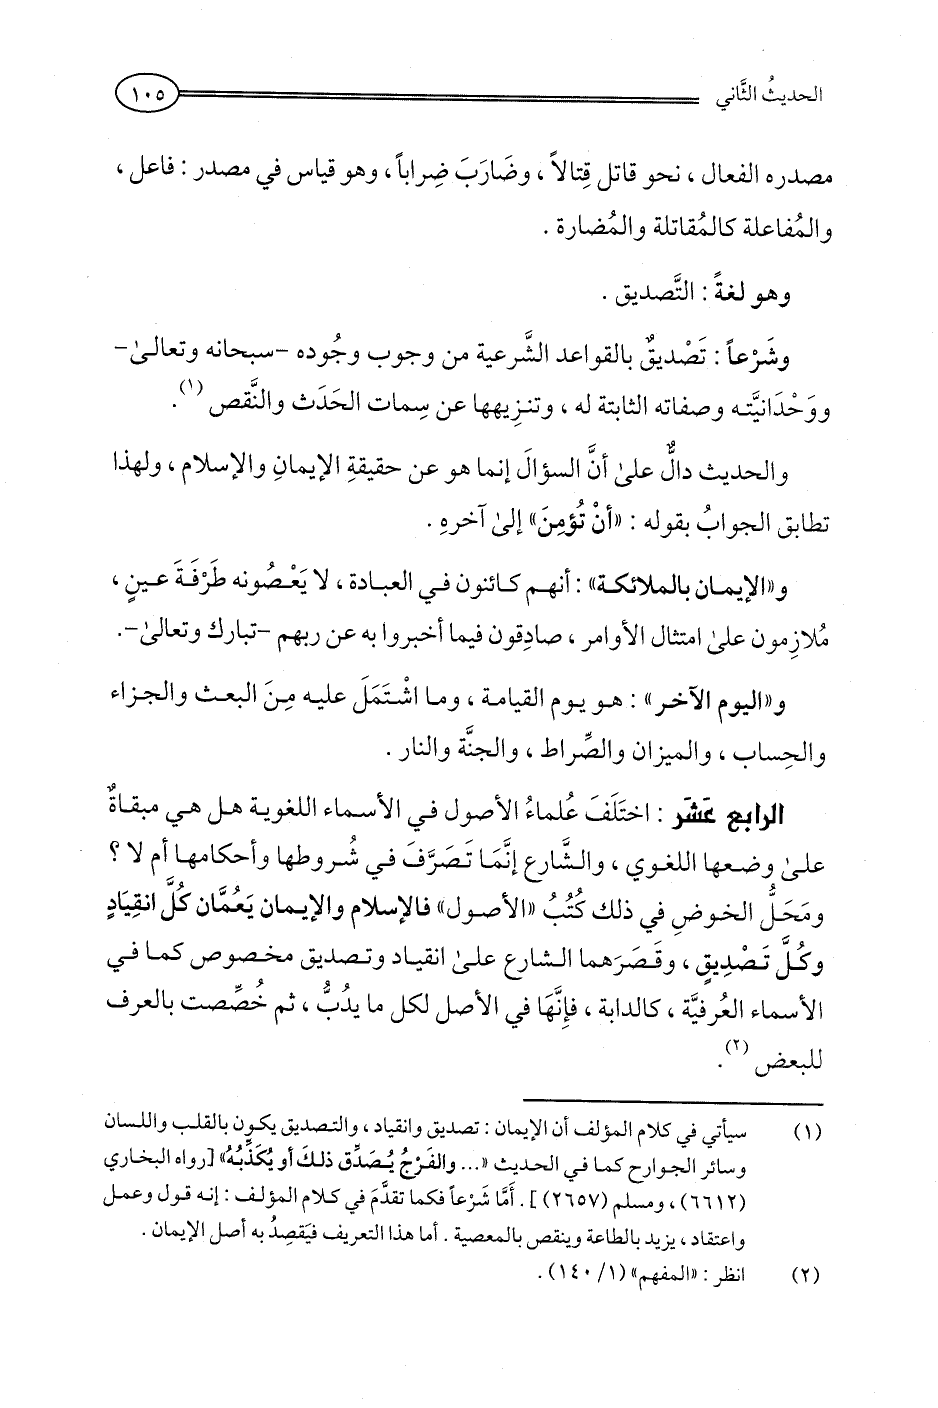 الحديثُ الثَّاني ١٠٥
مصدره الفعال ، نحو قاتل قِتالاً ، وضَارَبَ ضِراباً ، وهو قياس في مصدر : فاعل ،
والمُفاعلة كالمُقاتلة والمُضارة .
وهو لغةً : التَّصديق .
وشَرْعاً : تَصْديقٌ بالقواعد الشَّرعية من وجوب وجُوده -سبحانه وتعالىٰ-
ووَحْدَانيَّته وصفاته الثابتة له ، وتنزيهها عن سِمات الحَدَث والنَّقص (١).
والحديث دالٌّ علىٰ أنَّ السؤالَ إنما هو عن حقيقةِ الإيمانِ والإسلام ، ولهذا
تطابق الجوابُ بقوله : «أنْ تُؤمِنَ» إلىٰ آخرهِ .
و«الإيمان بالملائكة» : أنهم كائنون في العبادة ، لا يَعْصُونه طَرْفَةَ عينٍ ،
مُلازِمون علىٰ امتثال الأوامر ، صادِقون فيما أخبروا به عن ربهم -تبارك وتعالىٰ-.
و«اليوم الآخر» : هو يوم القيامة ، وما اشْتَمَلَ عليه مِنَ البعث والجزاء
والحِساب ، والميزان والصِّراط ، والجنَّة والنار .
الرابع عَشَر : اختَلَفَ عُلماءُ الأصول في الأسماء اللغوية هل هي مبقاةٌ
علىٰ وضعها اللغوي ، والشَّارع إنَّمَا تَصَرَّفَ في شُروطها وأحكامها أم لا ؟
ومَحَلُّ الخوضِ في ذلك كُتُبُ «الأصول» فالإسلام والإيمان يَعُمَّان كُلَّ انقِيَادٍ
وكُلَّ تَصْدِيقٍ ، وقَصَرَهما الشارع علىٰ انقياد وتصديق مخصوص كما في
الأسماء العُرفيَّة ، كالدابة ، فإنَّهَا في الأصل لكل ما يدُبُّ ، ثم خُصِّصت بالعرف
للبعض (٢).
(١) سيأتي في كلام المؤلف أن الإيمان : تصديق وانقياد ، والتصديق يكون بالقلب واللسان
وسائر الجوارح كما في الحديث «... والفَرْجُ يُصَدِّق ذلكَ أو يُكَذِّبُهُ» [رواه البخاري
(٦٦١٢) ، ومسلم (٢٦٥٧) ] . أمَّا شَرْعاً فكما تقدَّمَ في كلام المؤلف : إنه قول وعمل
واعتقاد ، يزيد بالطاعة وينقص بالمعصية . أما هذا التعريف فيَقصِدُ به أصل الإيمان .
(٢) انظر : «المفهم» (١/ ١٤٠) .